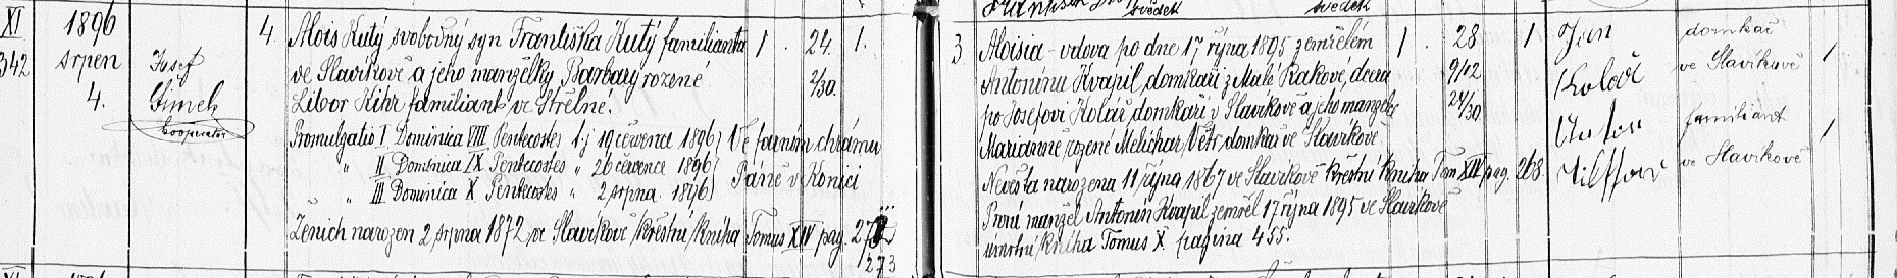 František svědek svědek
XI 1896 4. Alois Kutý svobodný syn Františka Kutý familianta 1. 24. 1.
342 srpen Josef ve Slavíkově a jeho manželky Barbary rozené 2/30.
4. Šimek Libor Kihr familiant ve Střelné.
Cooperator
Promulgatio I Dominica VIII Pentecostes t.j. 19 července 1896 Ve farním chrámu
" II Dominica IX Pentecostes " 26 července 1896 Páně v Konici
" III Dominica X Pentecostes " 2 srpna 1896
Ženich narozen 2 srpna 1872 ve Slavíkově křestní kniha Tomus XIV pag.
273
3. Aloisia - vdova po dne 17 října 1895 zemřelém 1. 28 1 Jan domkař
Antonínu Kvapil domkáři z Malé Rakové, dcera 9/12 Kolář ve Slavíkově 1
po Josefovi Kolář domkáři v Slavíkově a jeho manželce 24/30
Marianně, rozené Melichar Větr domkař ve Slavíkově familiant 1
Nevěsta narozena 11 října 1867 ve Slavíkově křestní kniha Tom XIII pag. 268. ve Slavíkově
První manžel Antonín Kvapil zemřel 17 října 1895 ve Slavíkově
úmrtní kniha Tomus X. pagina 455.